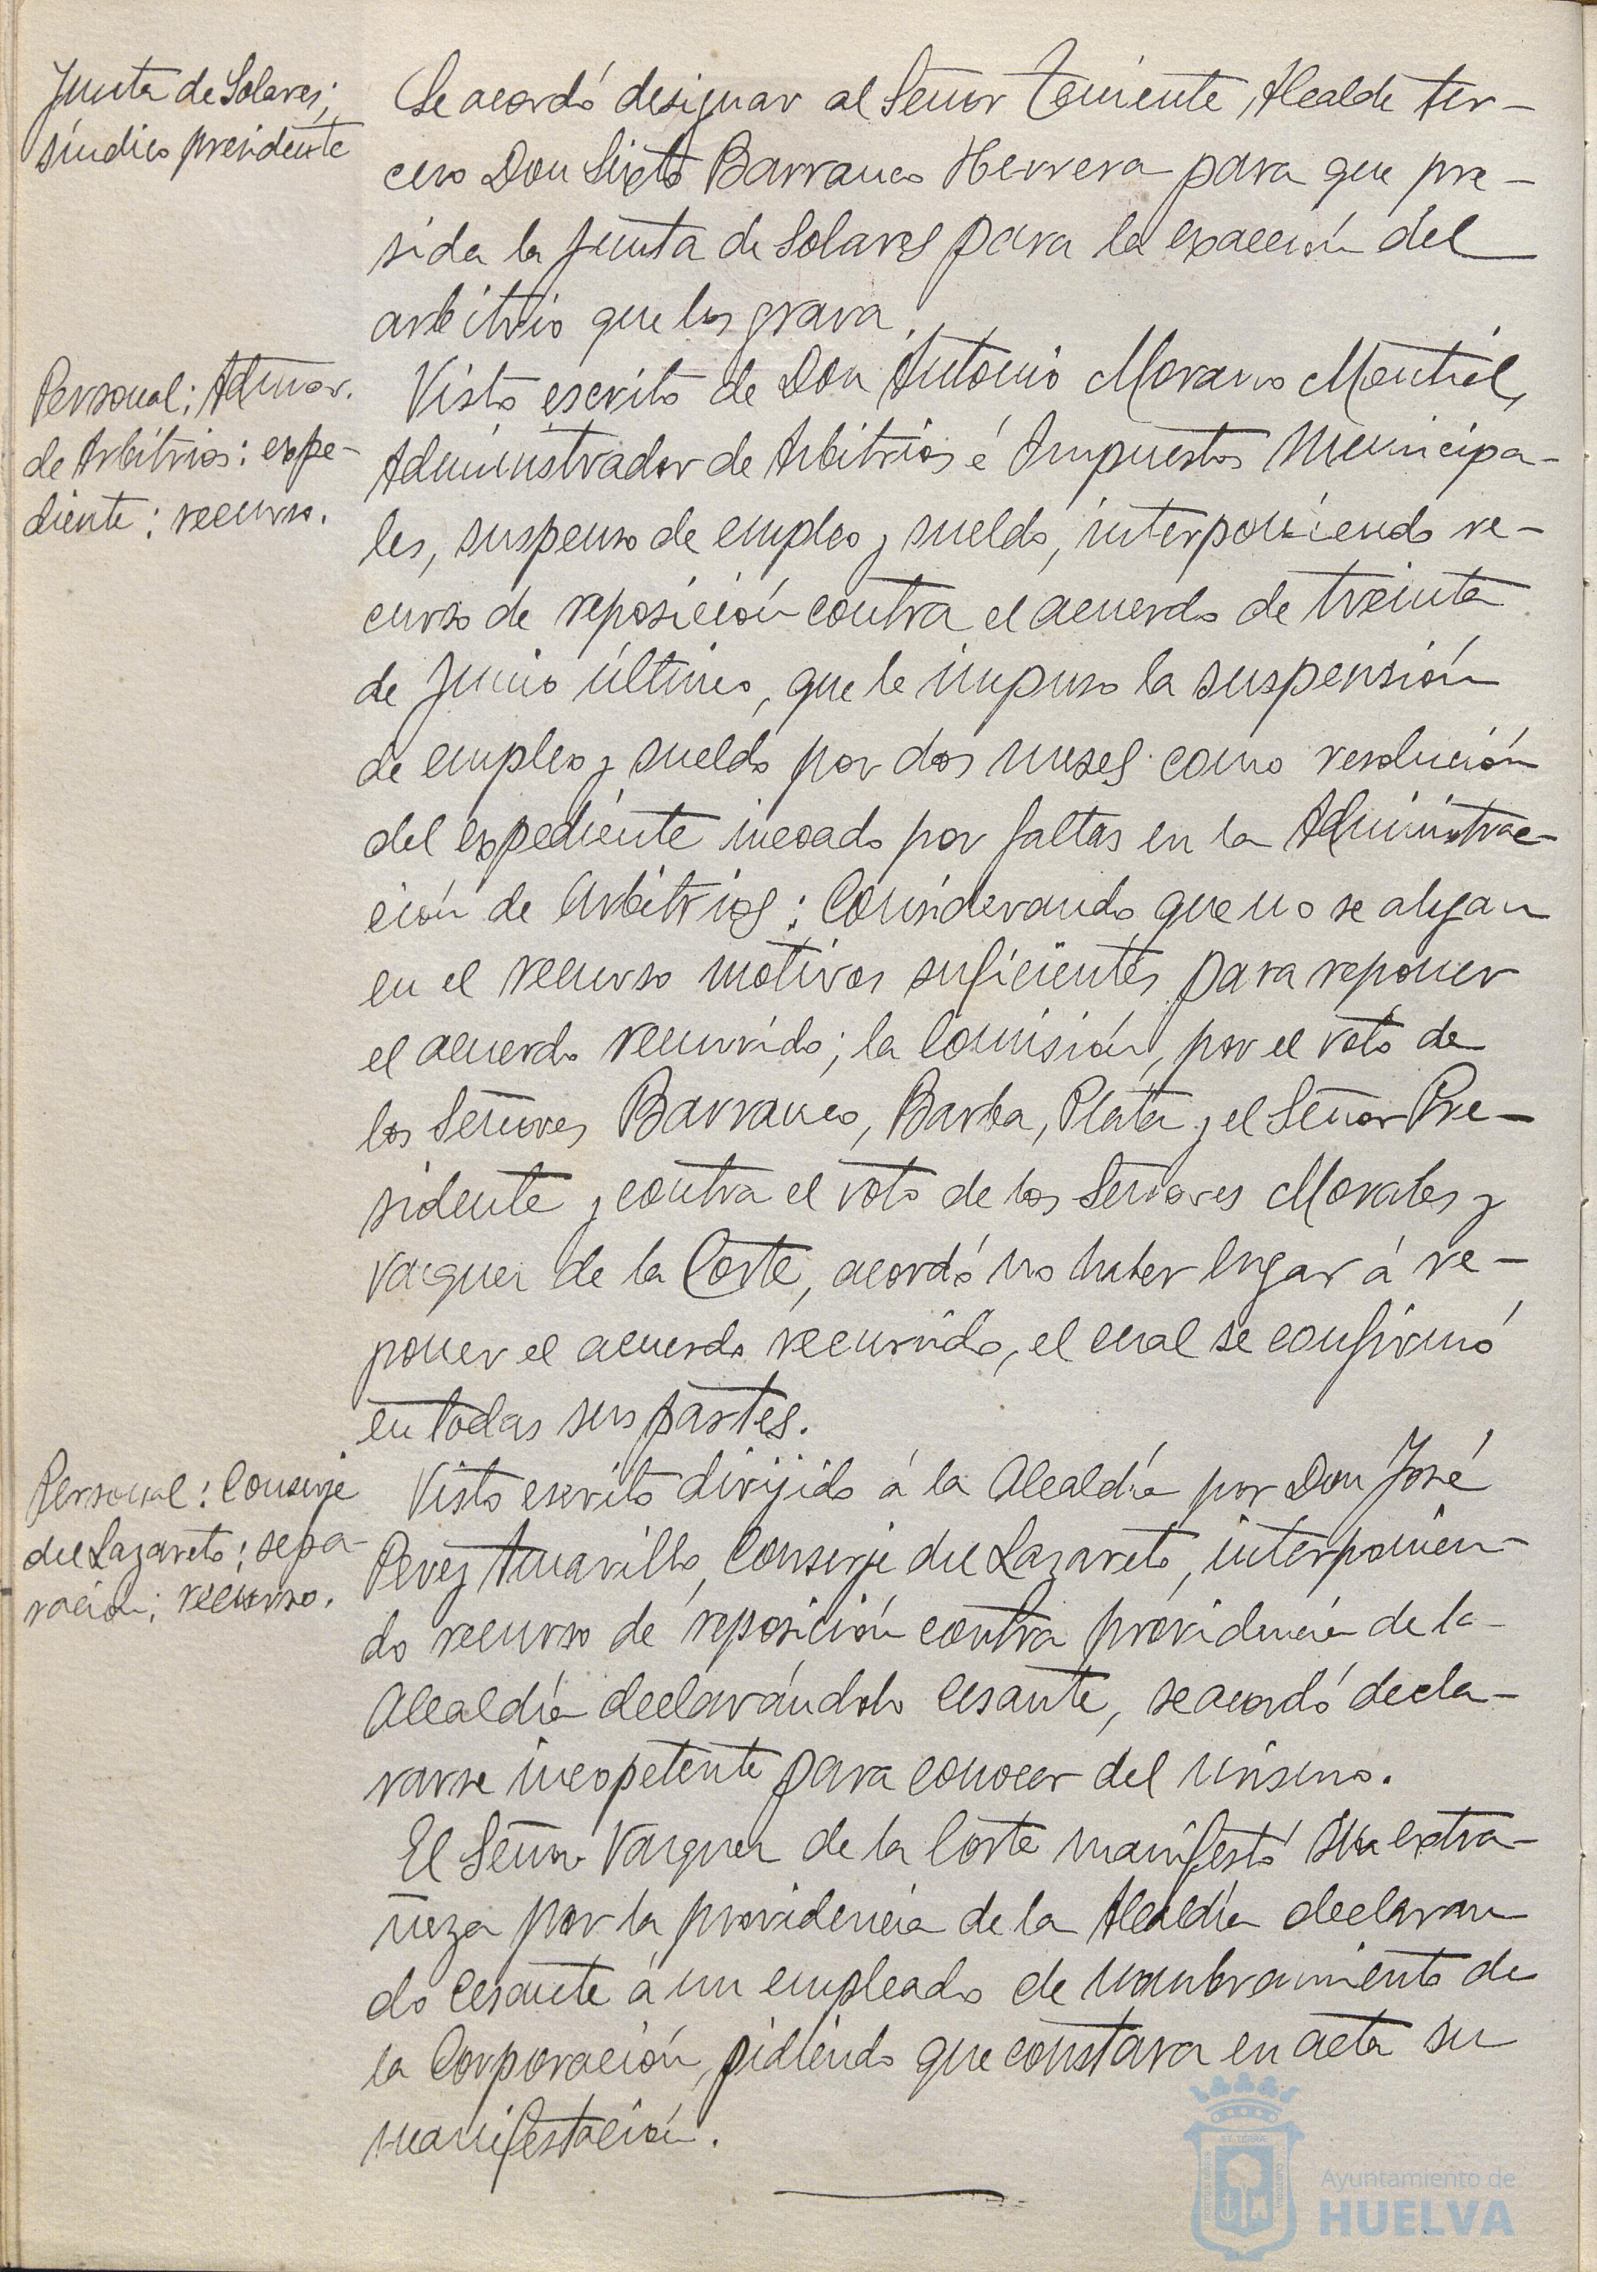 Junta de Solares;
síndico presidente
Se acordó designar al Señor Teniente Alcalde ter-
cero Don Sixto Barranco Herrera para que pre-
sida la Junta de Solares para la exacción del
arbitrio que los grava.
Personal; Admor.
de Arbitrios: expe-
diente; recurso.
Visto escrito de Don Antonio Morano Montiel,
Administrador de Arbitrios é Impuestos Municipa-
les, suspenso de empleo y sueldo, interponiendo re-
curso de reposición contra el acuerdo de treinta
de Junio último, que le impuso la suspensión
de empleo y sueldo por dos meses como resolución
del expediente incoado por faltas en la Administrac-
ción de Arbitrios; Considerando que no se alegan
en el recurso motivos suficientes para reponer
el acuerdo recurrido; la Comisión, por el voto de
los Señores Barranco, Barba, Plata y el Señor Pre-
sidente y contra el voto de los Señores Morales y
Vazquez de la Corte, acordó no haber lugar á re-
poner el acuerdo recurrido, el cual se confirmó
en todas sus partes.
Personal: Conserje
del Lazareto; sepa-
ración; recurso.
Visto escrito dirijido á la Alcaldía por Don José
Perez Amarillo, Conserje del Lazareto, interponien-
do recurso de reposición contra providencia de la
Alcaldía declarándolo cesante, se acordó decla-
rarse incopetente para conocer del mismo.
El Señor Vazquez de la Corte manifestó su extra-
ñeza por la providencia de la Alcaldía declaran
do cesante á un empleado de nombramiento de
la Corporación, pidiendo que constara en acta su
manifestación.
Ayuntamiento de
HUELVA